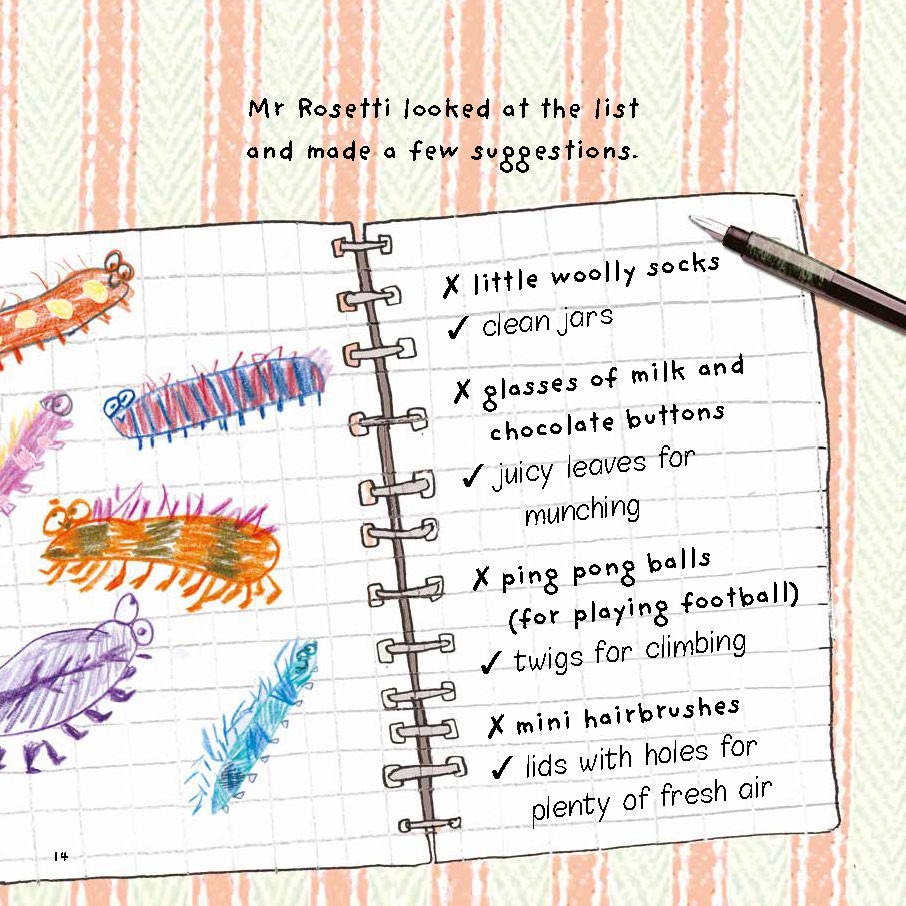 Mr Rosetti looked at the list
and made a few suggestions.
✗ little woolly socks
✓ clean jars
✗ glasses of milk and
chocolate buttons
✓ juicy leaves for
munching
✗ ping pong balls
(for playing football)
✓ twigs for climbing
✗ mini hairbrushes
✓ lids with holes for
plenty of fresh air
14